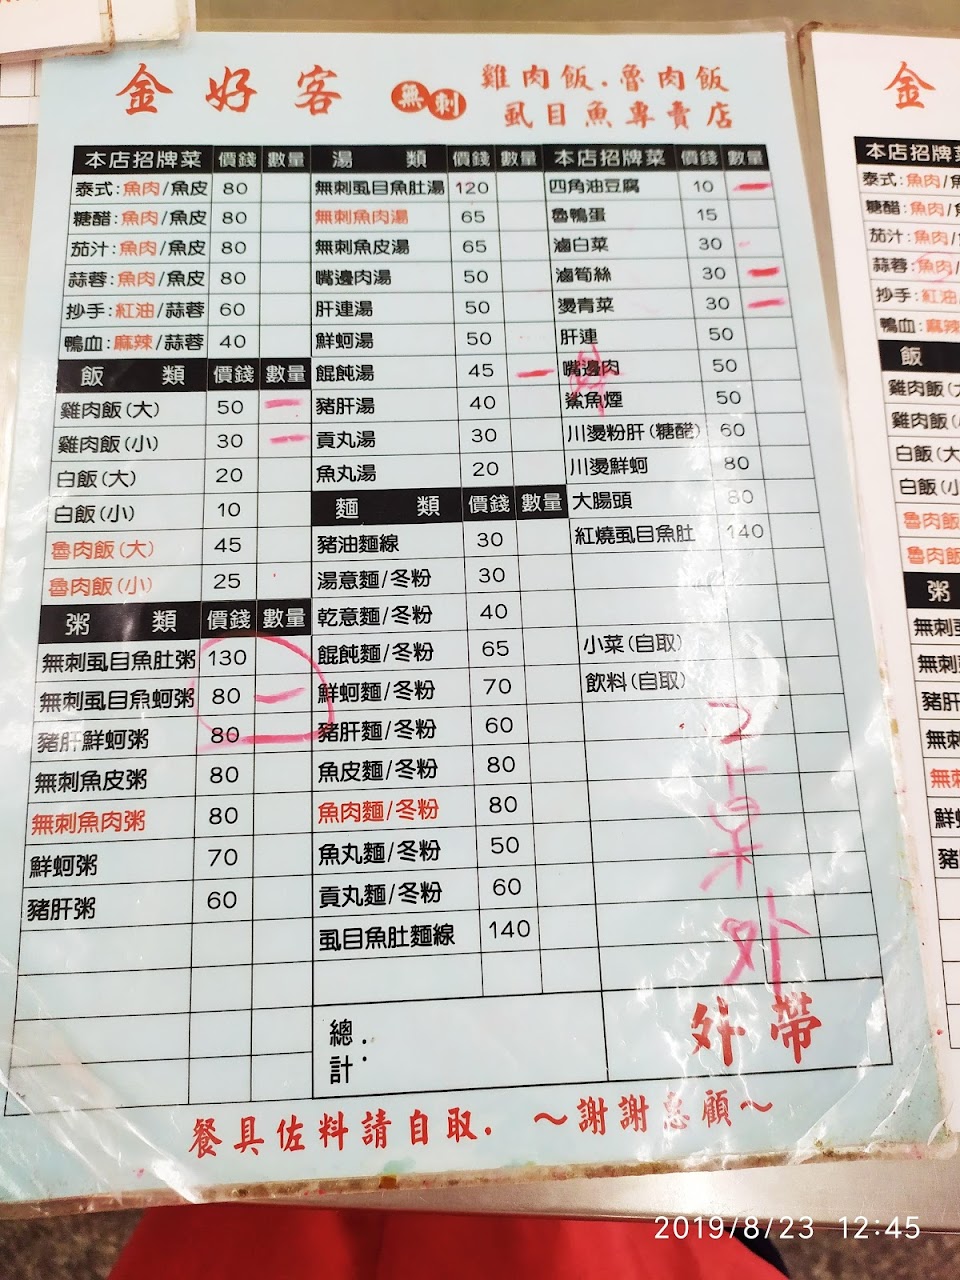 金好客 無刺 雞肉飯.魯肉飯
虱目魚專賣店
本店招牌菜 價錢 數量 湯類 價錢 數量 本店招牌菜 價錢 數量
泰式:魚肉/魚皮 80 無刺虱目魚肚湯 120 四角油豆腐 10 一
糖醋:魚肉/魚皮 80 無刺魚肉湯 65 魯鴨蛋 15
茄汁:魚肉/魚皮 80 無刺魚皮湯 65 滷白菜 30
蒜蓉:魚肉/魚皮 80 嘴邊肉湯 50 滷筍絲 30 一
抄手:紅油/蒜蓉 60 肝連湯 50 燙青菜 30 一
鴨血:麻辣/蒜蓉 40 鮮蚵湯 50 肝連 50
飯類 價錢 數量 餛飩湯 45 一 嘴邊肉 50
雞肉飯(大) 50 一 豬肝湯 40 鯊魚煙 50
雞肉飯(小) 30 一 貢丸湯 30 川燙粉肝(糖醋) 60
白飯(大) 20 魚丸湯 20 川燙鮮蚵 80
白飯(小) 10 麵類 價錢 數量 大腸頭 80
魯肉飯(大) 45 豬油麵線 30 紅燒虱目魚肚 140
魯肉飯(小) 25 湯意麵/冬粉 30
粥類 價錢 數量 乾意麵/冬粉 40
無刺虱目魚肚粥 130 餛飩麵/冬粉 65 小菜(自取)
無刺虱目魚蚵粥 80 一 鮮蚵麵/冬粉 70 飲料(自取)
豬肝鮮蚵粥 80 豬肝麵/冬粉 60
無刺魚皮粥 80 魚皮麵/冬粉 80
無刺魚肉粥 80 魚肉麵/冬粉 80
鮮蚵粥 70 魚丸麵/冬粉 50
豬肝粥 60 貢丸麵/冬粉 60
虱目魚肚麵線 140
2
桌
外
總計:
外帶
餐具佐料請自取. ～謝謝惠顧～
金
本店招牌菜
泰式:魚肉/
糖醋:魚肉/
茄汁:魚肉/
蒜蓉:魚肉/
抄手:紅油/
鴨血:麻辣
飯
雞肉飯(大
雞肉飯(小
白飯(大
白飯(小
魯肉飯
魯肉飯
粥
無刺虱
無刺虱
豬肝
無刺
無刺
鮮蚵
豬
2019/8/23 12:45